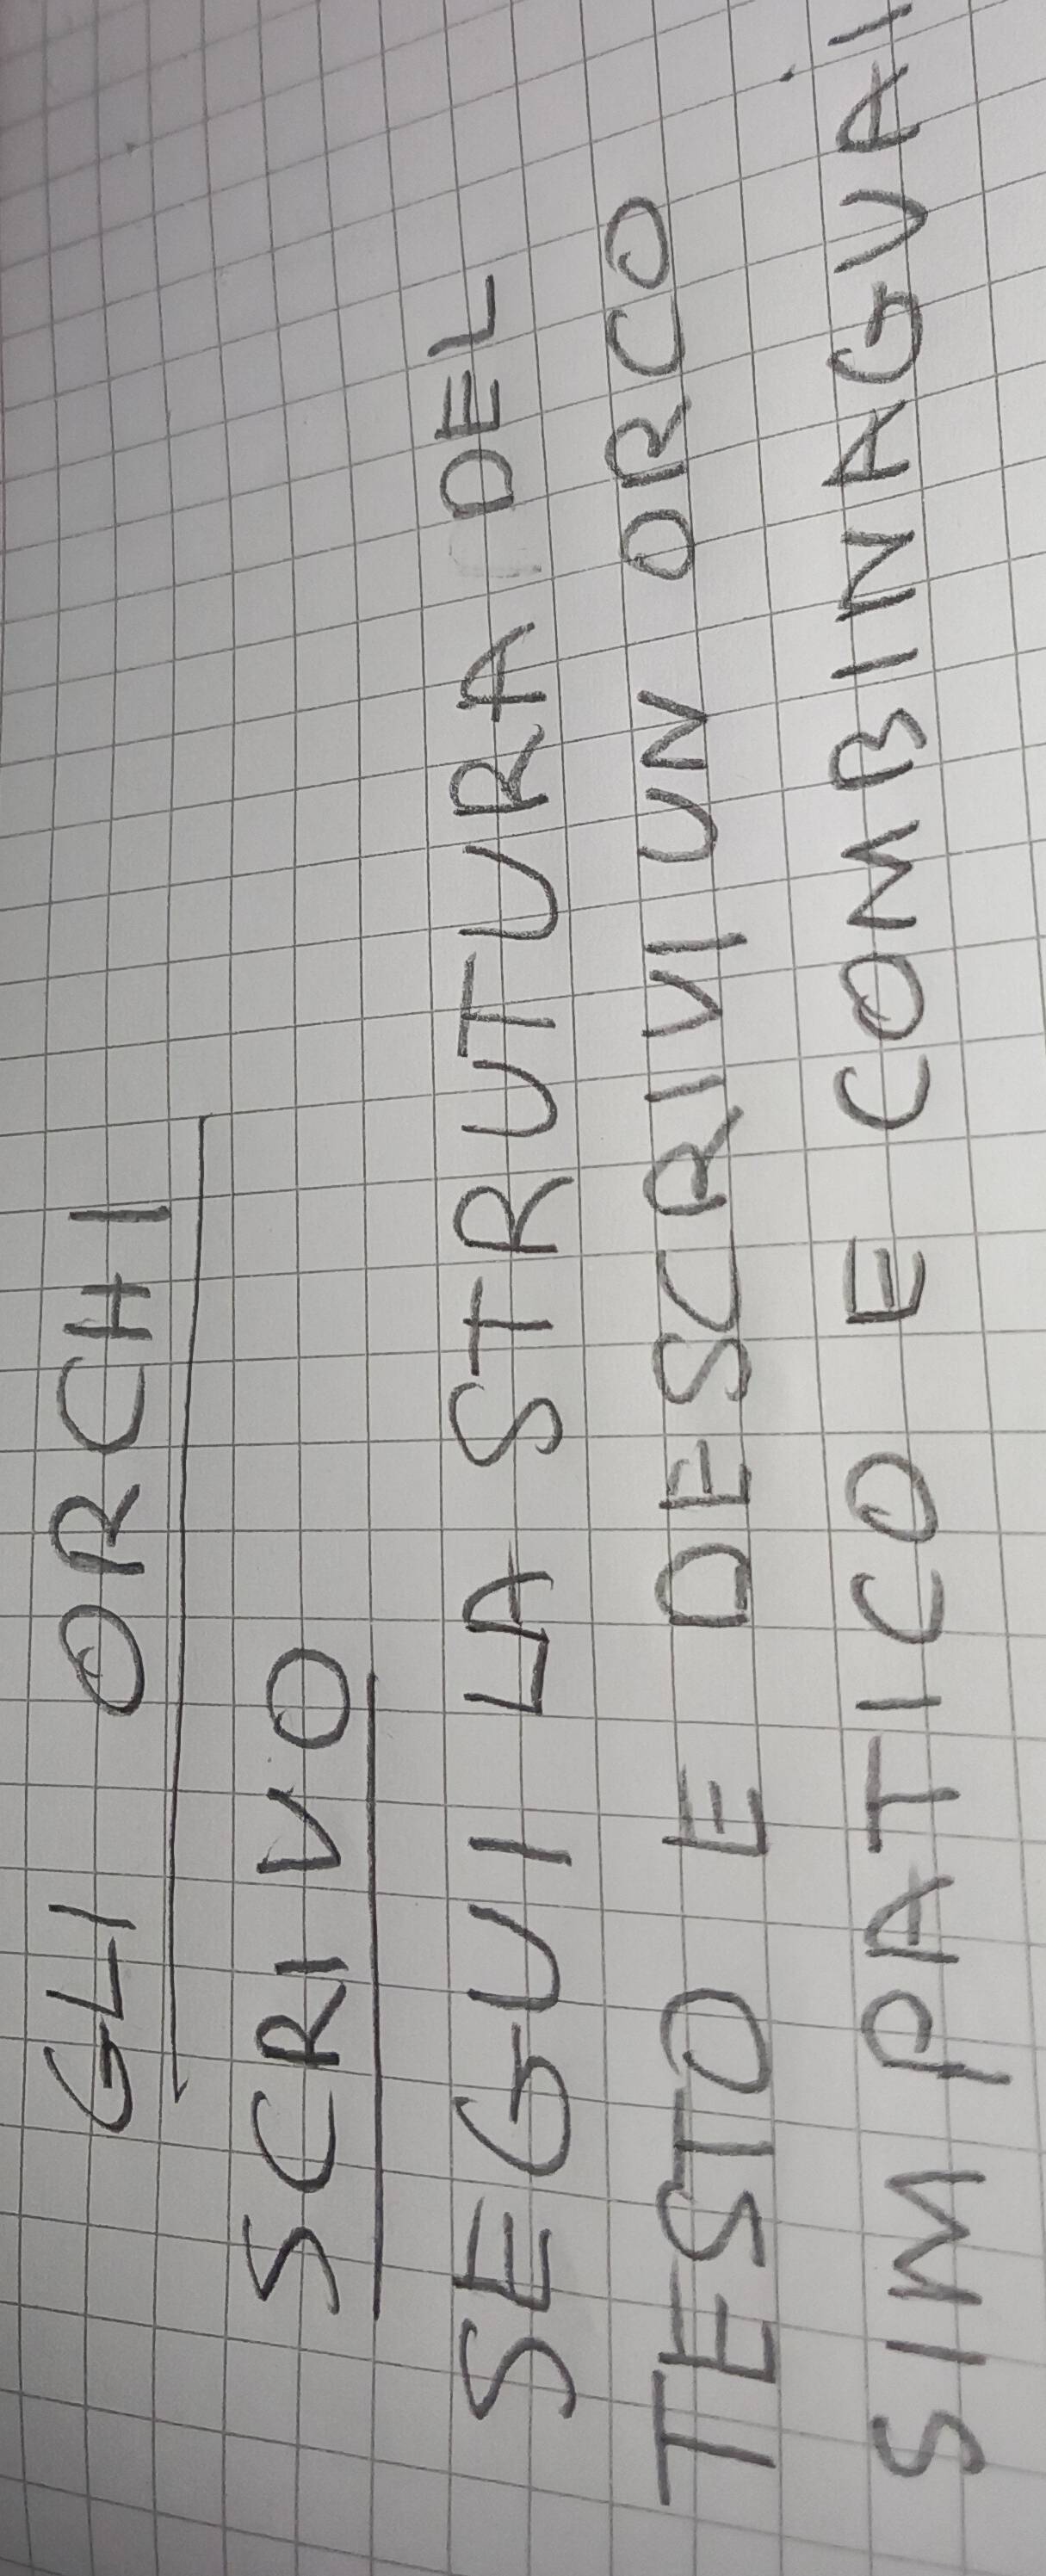 GLI ORCHI
SCRIVO
SEGUI LA STRUTURA DEL
TESTO E DESCRIVI UN ORCO
SIMPATICO E COMBINAGUAI